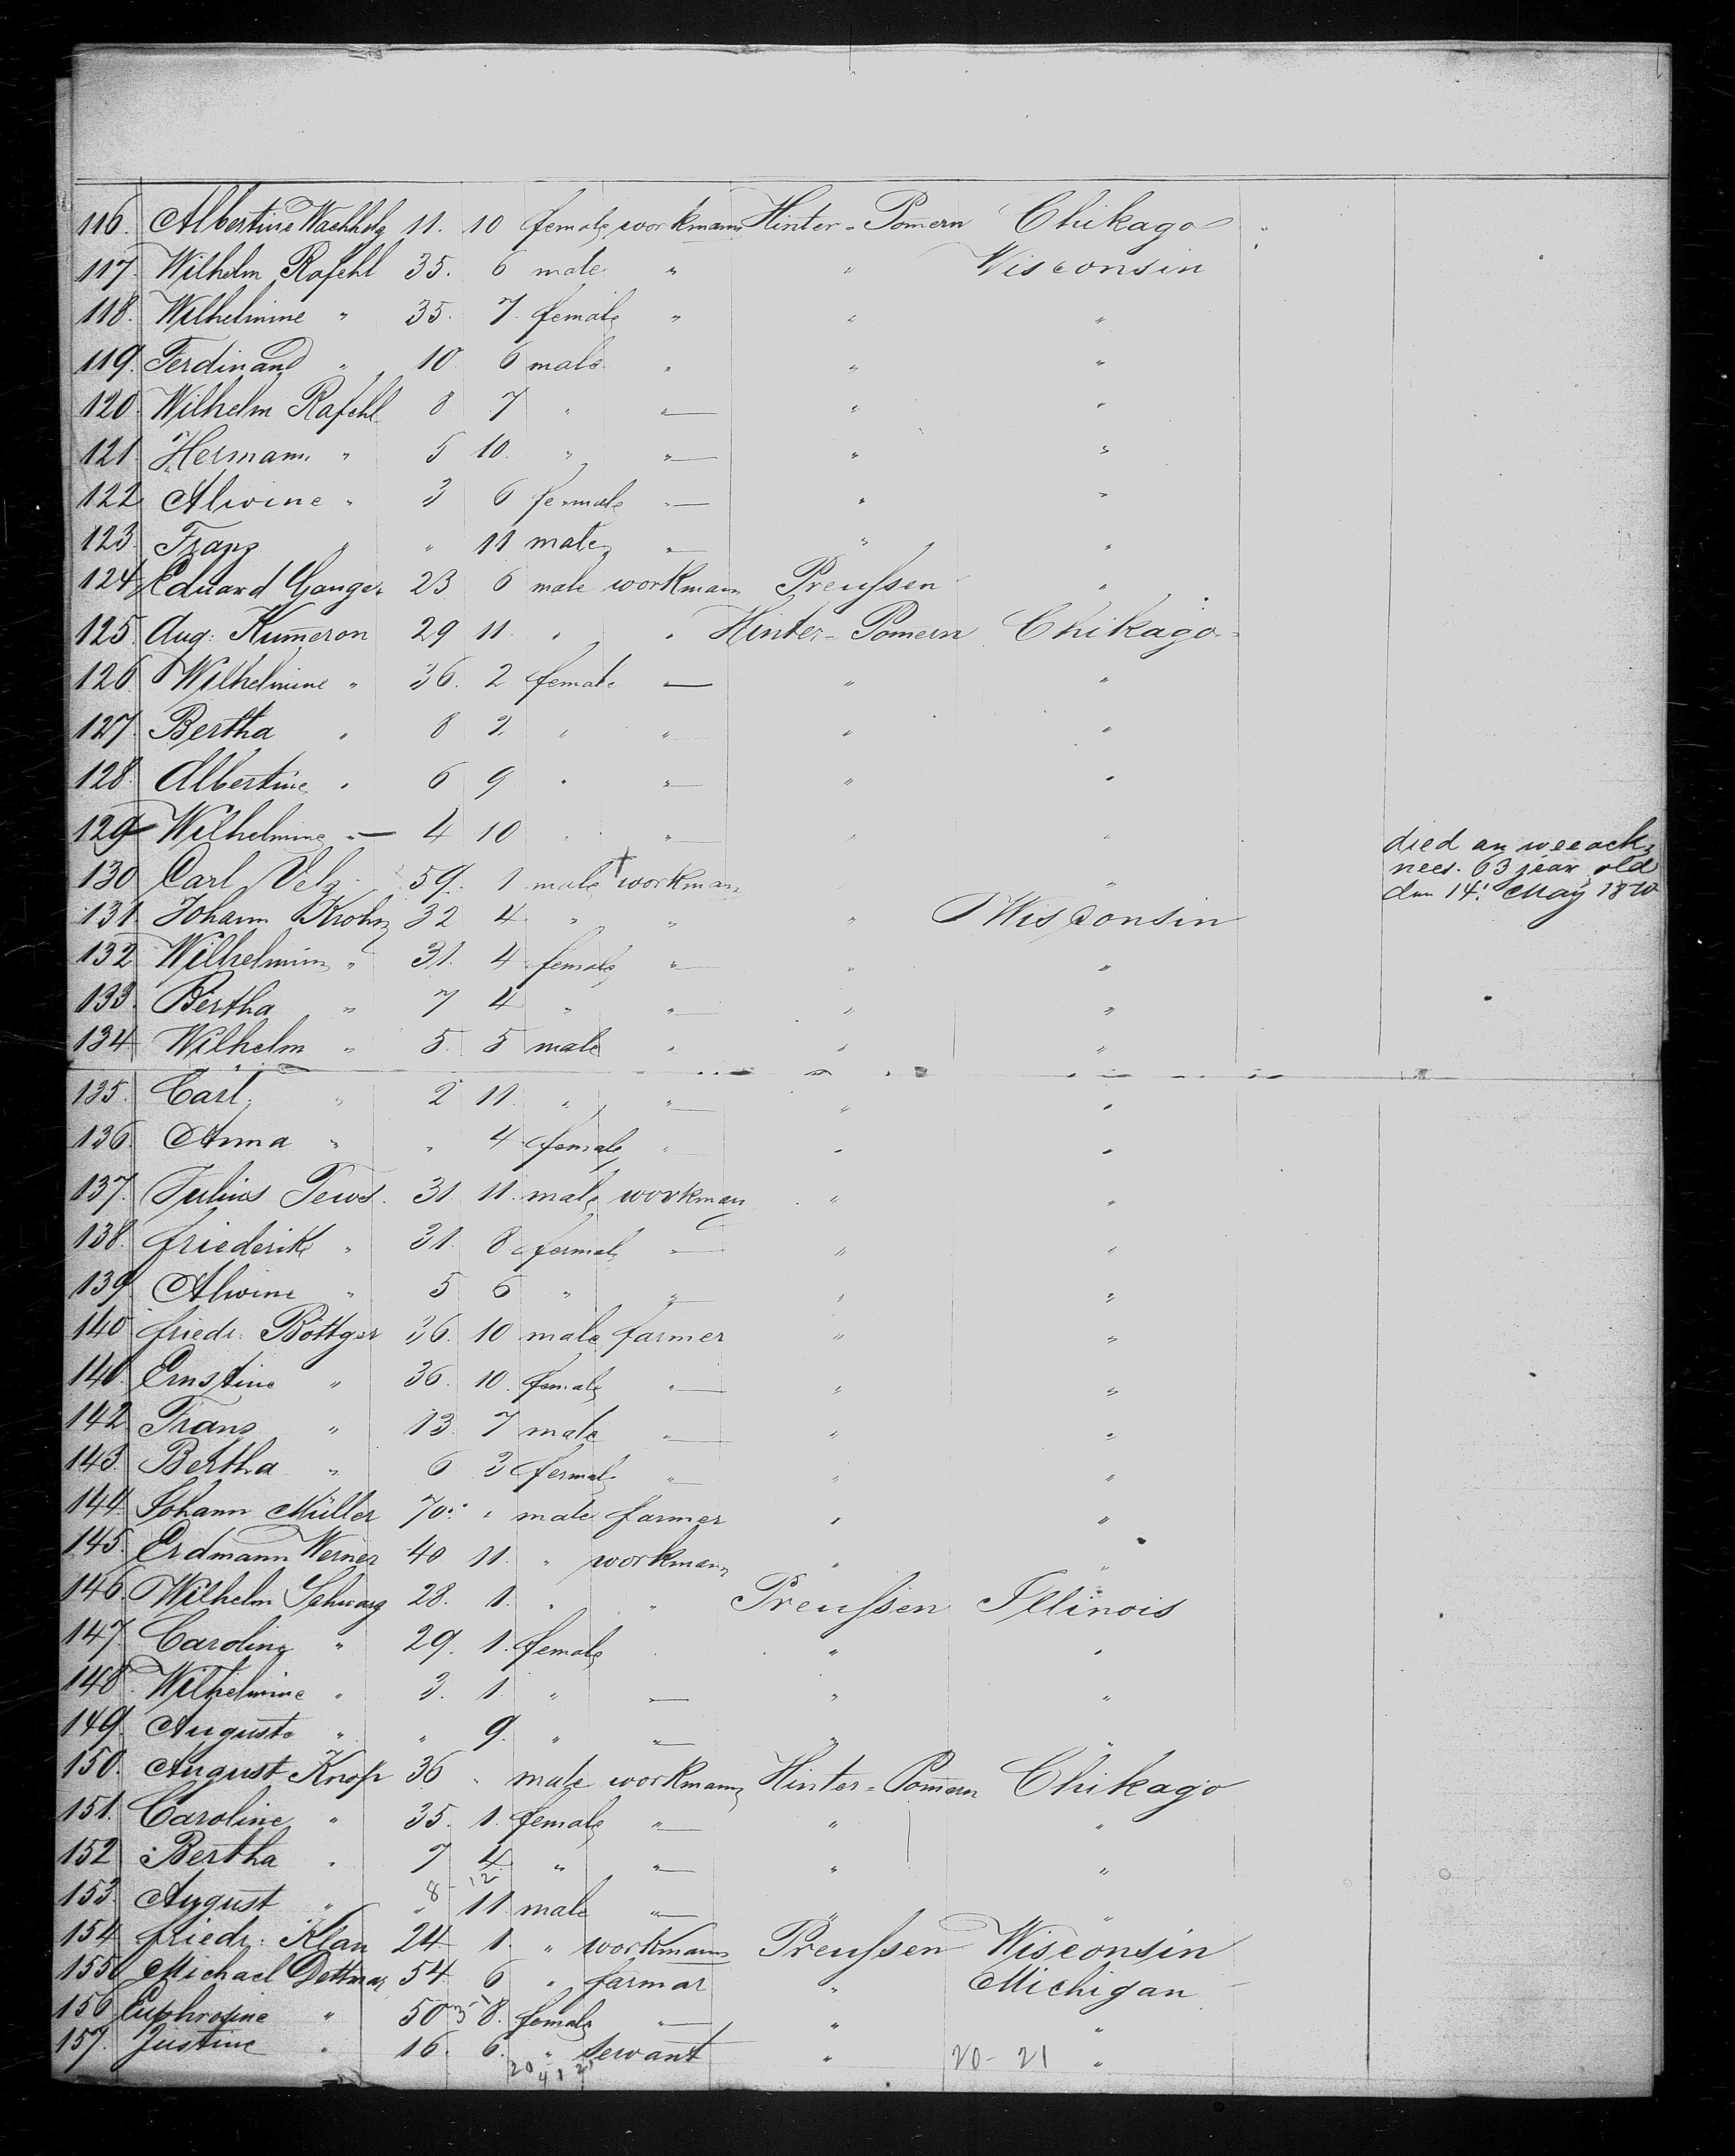 116. Albertine Wachholz 11. 10 female workmann Hinter-Pom̄ern Chikago
117. Wilhelm Rafehl 35. 6 male " " Wisconsin
118. Wilhelmine " 35. 7. female " " "
119. Ferdinand " 10 6 male " " "
120. Wilhelm Rafehl 8 7 " "— " "
121. Hermann " 5 10. " "— " "
122 Alwine " 3 6 female "— " "
123. Franz " " 11 male "— " "
124. Eduard 23 6 male workmann Preußen "
125. Aug: Kum̄eron 29 11. " " Hinter-Pom̄ern Chikago
126. Wilhelmine " 36. 2 female — " "
127. Bertha " 8 2 " "— " "
128. Albertine " 6 9 " "— " "
129 Wilhelmine "— 4 10 " "— " "
130 Carl Velz 59. 1 male † workmann " died an 63 jear old den 14. May 1870
131. Johann Krohn 32 4 " " " Wisconsin
132 Wilhelmine " 31. 4 female " " "
133. Bertha " 7 4 " "— " "
134 Wilhelm " 5. 5 male " " "
135. Carl " 2 11. " "— " "
136. Anna " " 4 female " " "
137. Julius Tews. 31 11. male workman " "
138. friederike " 31. 8 female "— " "
139. Alwine " 5 6 " "— " "
140 friedr: Böttger 36. 10 male farmer " "
141. Ernstine " 36. 10. female "— " "
142 Franz " 13. 7 male "— " "
143. Bertha " 6 3 female "— " "
144. Johann Müller 70. " male farmer " "
145. Erdmann Werner 40 11. " workmann " "
146. Wilhelm Schwarz 28. 1. " " Preußen Illinois
147. Caroline " 29. 1. female " "
148. Wilhelmine " 3. 1. " — " "
149. Auguste " " 9. " "— " "
150. August Knop 36 " male workmann Hinter-Pom̄ern Chikago
151. Caroline " 35. 1. female "— " "
152 Bertha " 7 4 " "— " "
8 12
153. August " " 11 male "— " "
154 friedr: Klan 24 1. " workmann Preußen Wisconsin
155 Michael Dettmar 54 6 " farmar " Michigan
156 Euphrosine " 50 35 8. female "— " "
157. Justine " 16 6. " servant " "
20 41 21 20-21